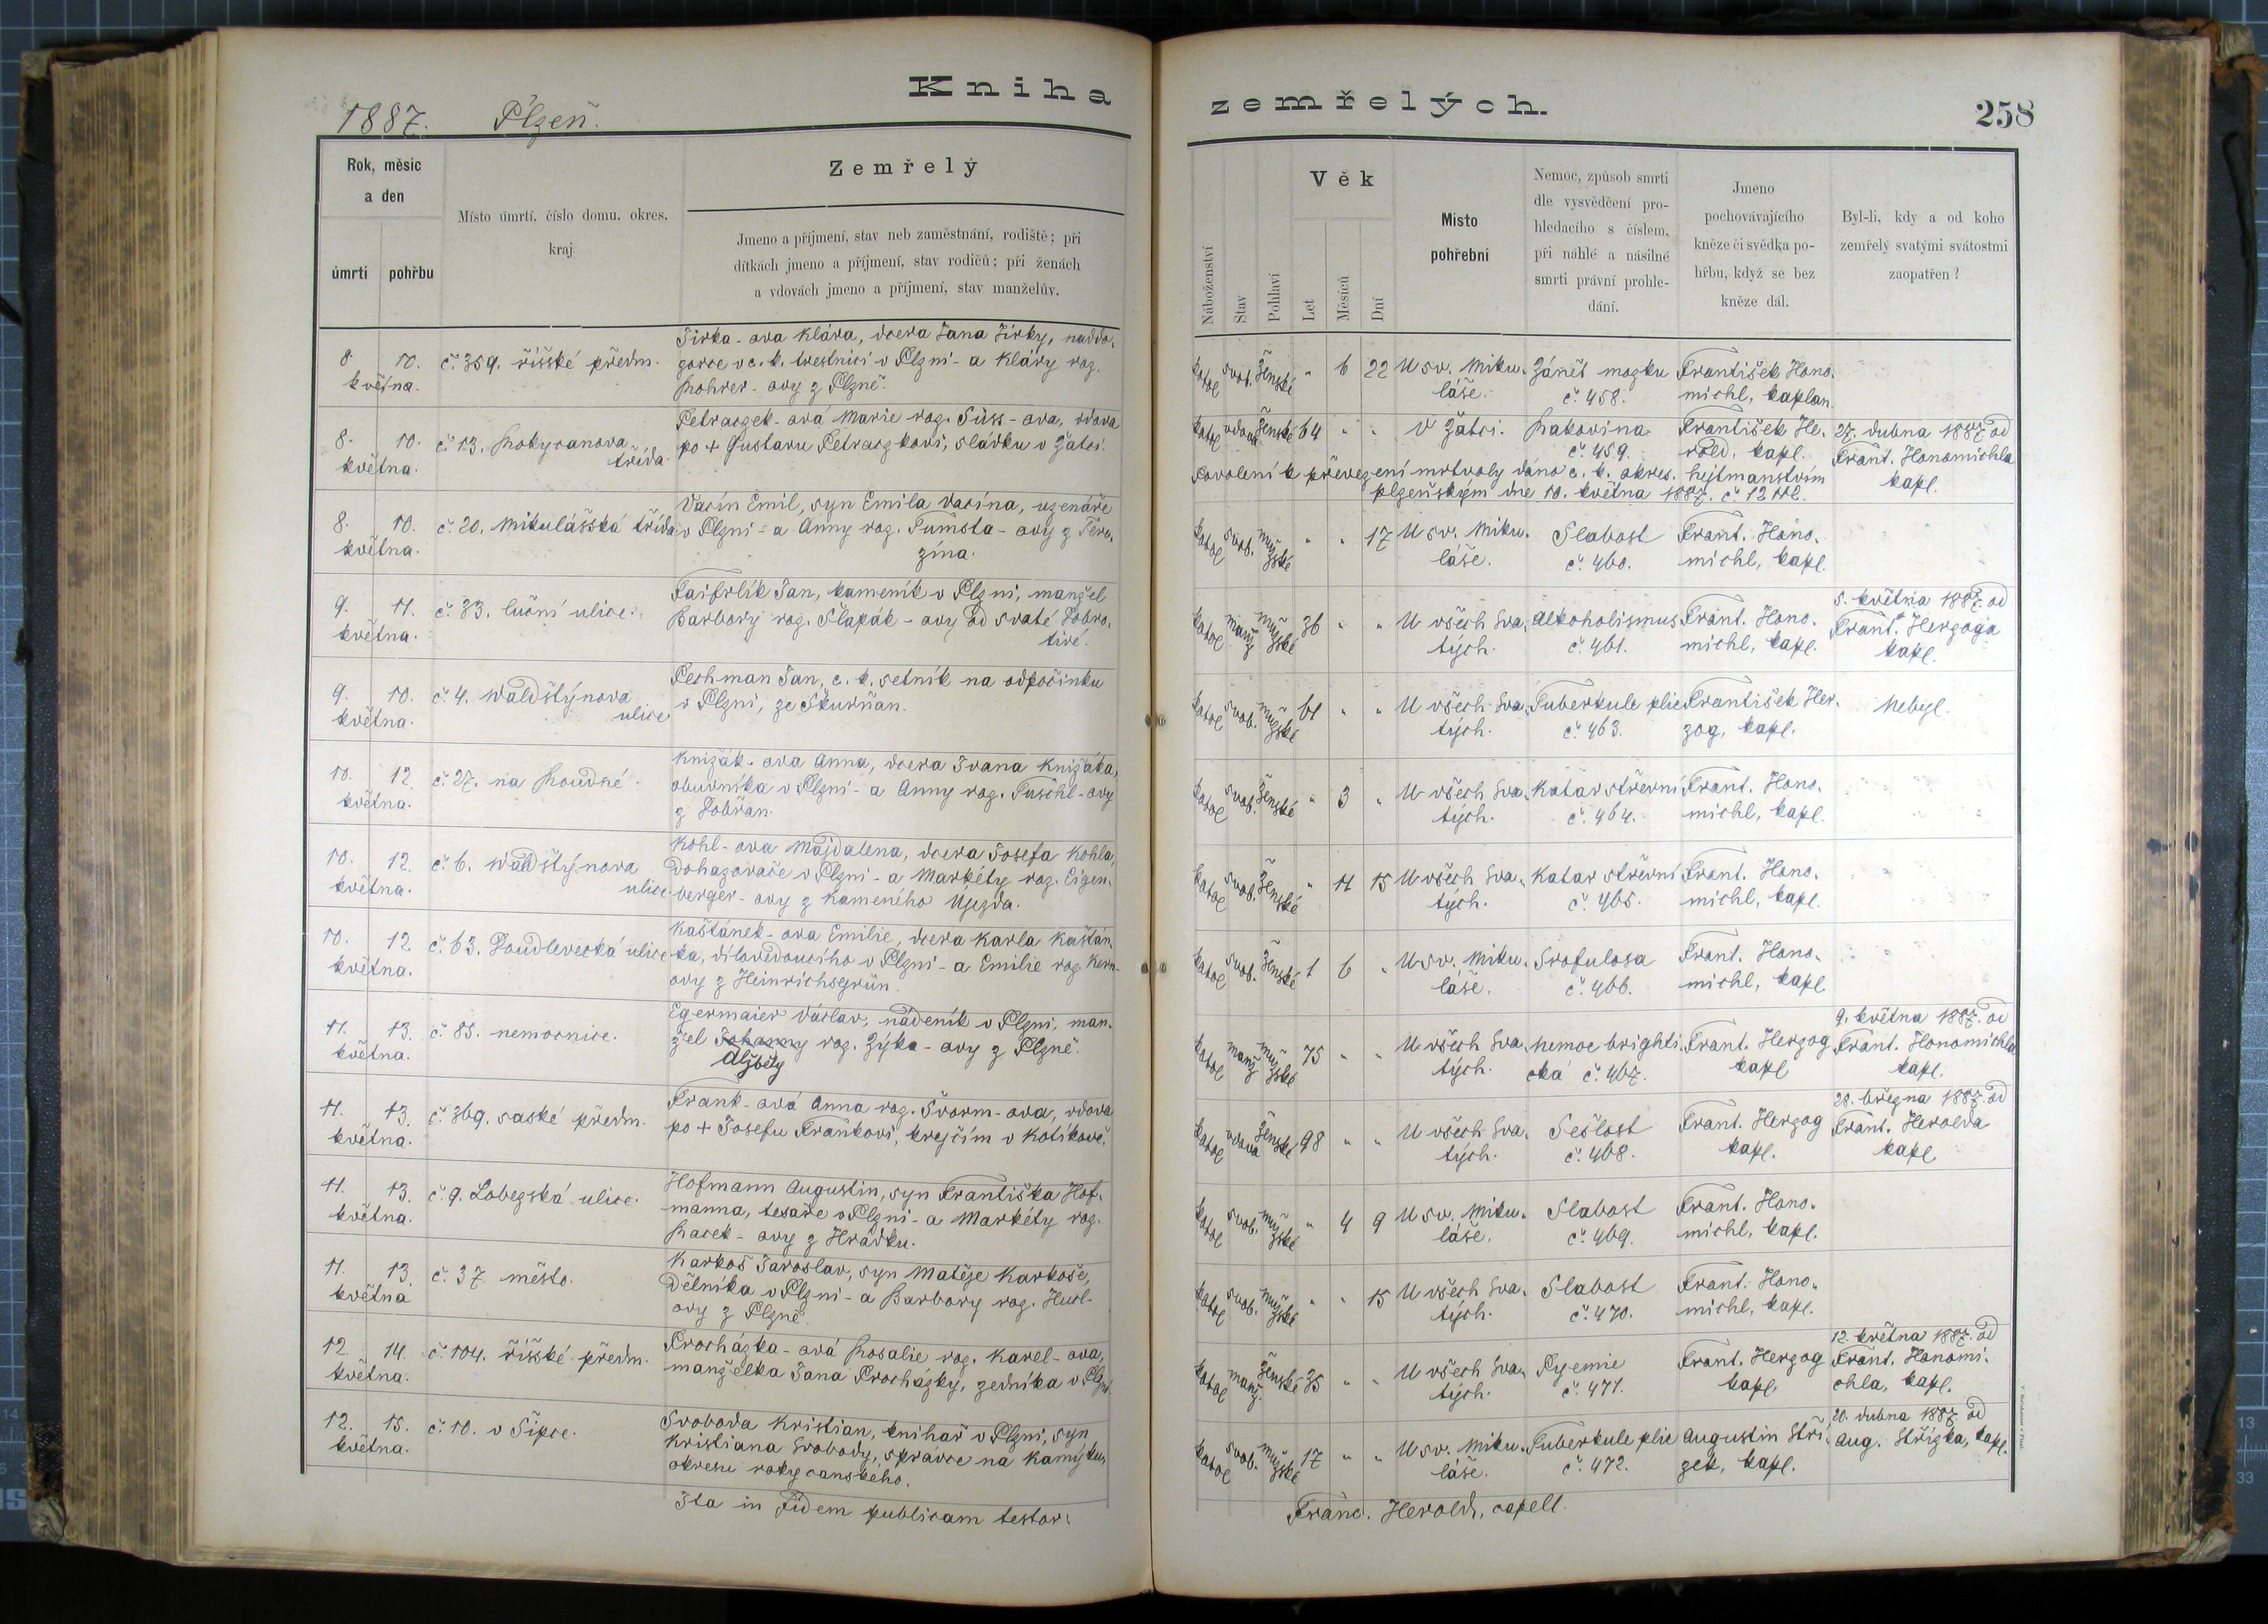 Kniha
1887. Plzeň.
Rok, měsíc
a den
úmrtí
pohřbu
Místo úmrtí, číslo domu, okres,
kraj.
Zemřelý
Jmeno a příjmení, stav neb zaměstnání, rodiště; při
dítkách jmeno a příjmení, stav rodičů; při ženách
a vdovách jmeno a příjmení, stav manželův.
8 10.
května.
č. 359. říšské předm.
Jirka-ova Klára, dcera Jana Jirky, naddo-
zorce v c. k. trestnici v Plzni - a Kláry roz.
Rohrer-ovy z Plzně.
8. 10.
května.
č. 13. Rokycanova
třída.
Petraczek-ová Marie roz. Süss-ova, vdova
po + Gustavu Petraczkovi, sládku v Žatci.
8. 10.
května.
č. 20. Mikulášská třída
Vacín Emil, syn Emila Vacína, uzenáře
v Plzni - a Anny roz. -ovy z Tere-
zína.
9. 11.
května.
č. 33. luční ulice.
Faifrlík Jan, kameník v Plzni, manžel
Barbory roz. Šlapák-ovy od svaté Dobro-
tivé.
9. 10.
května.
č. 4. Waldštýnova
ulice
Pechman Jan, c. k. setník na odpočinku
v Plzni, ze Škurňan.
10. 12.
května.
č. 27. na Roudné.
Knižák-ova Anna, dcera Ivana Knižáka,
obuvníka v Plzni - a Anny roz. Puschl-ovy
z Dobřan.
10. 12.
května.
č. 6. Waldštýnova
ulice.
Kohl-ova Majdalena, dcera Josefa Kohla,
Dohazovače v Plzni - a Markéty roz. Eigen-
berger-ovy z Kameného Ujezda.
10. 12
května.
č. 63. Doudlevecká ulice
Kaštánek-ova Emilie, dcera Karla Kaštán-
ka, dílovedoucího v Plzni - a Emilie roz. Kern-
ovy z Heinrichsgrün.
11. 13.
května.
č. 85. nemocnice.
Egermaier Václav, nádeník v Plzni, man-
žel Johanny roz. Zýka-ovy z Plzně.
Alžběty
11. 13.
května.
č. 369. saské předm.
Frank-ová Anna roz. Švorm-ova, vdova
po + Josefu Frankovi, krejčím v Kotíkově.
11. 13.
května.
č. 9. Lobezská ulice.
Hofmann Augustin, syn Františka Hof-
manna, tesaře v Plzni - a Markéty roz.
Racek-ovy z Hrádku.
11. 13.
května
č. 37 město.
Karkoš Jaroslav, syn Matěje Karkoše,
Dělníka v Plzni - a Barbory roz. Hucl-
ovy z Plzně.
12. 14.
května.
č. 104. říšské předm.
Procházka-ová Rosalie roz. Karel-ova,
manželka Jana Procházky, zedníka v Plzni.
12. 15.
května.
č. 10. v Šipce.
Svoboda Kristian, knihař v Plzni, syn
Kristiana Svobody, správce na Kamýku,
okresu rokycanského.
Ita in fidem publicam testor:
zemřelých.
258
Náboženství
Stav
Pohlaví
Věk
Let
Měsíců
Dní
Místo
pohřební
Nemoc, způsob smrti
dle vysvědčení pro-
hledacího s číslem,
při náhlé a násilné
smrti právní prohle-
dání.
Jmeno
pochovávajícího
kněze či svědka po-
hřbu, když se bez
kněze dál.
Byl-li, kdy a od koho
zemřelý svatými svátostmi
zaopatřen?
katol svob. ženské " 6 22 U sv. Miku- Zánět mozku František Hono-
láše. č. 458. michl, kaplan
katol vdova ženské 64 " " V Žatci. Rakovina František He- 27. dubna 1887 od
č. 459. rold, kapl. Frant. Honomichla
kapl.
Povolení k převezení mrtvoly dáno c. k. okres. hejtmanstvím
plzeňským dne 10. května 1887. č. 12112.
katol svob. mužské " " 17 U sv. Miku- Slabost Frant. Hono-
láše. č. 460. michl, kapl.
katol manž mužské 36 " " U všech Sva- Alkoholismus Frant. Hono- 5. května 1887 od
tých. č. 461. michl, kapl. Frant. Herzoga
kapl.
katol svob. mužské 61 " " U všech Sva- Tuberkule plic František Her- Nebyl.
tých. č. 463. zog, kapl.
katol svob. ženské " 3 " U všech Sva- Katar střevní Frant. Hono-
tých. č. 464. michl, kapl.
katol svob. ženské " 11 15 U všech Sva- Katar střevní Frant. Hono-
tých. č. 465. michl, kapl.
katol svob. ženské 1 6 " U sv. Miku- Srofulosa Frant. Hono-
láše. č. 466. michl, kapl
katol manž mužské 75 " " U všech Sva- Nemoc brighti- Frant. Herzog 9. května 1887. od
tých. cká č. 467. kapl Frant. Honomichla
kapl.
katol vdova ženské 98 " " U všech Sva- Sešlost Frant. Herzog 28. března 1887. od
tých. č. 468. kapl. Frant. Herolda
kapl
katol svob. mužské " 4 9 U sv. Miku- Slabost Frant. Hono-
láše. č. 469. michl, kapl.
katol svob. mužské " " 15 U všech Sva- Slabost Frant. Hono-
tých. č. 470. michl, kapl.
katol manž. ženské 35 " " U všech Sva- Pyemie Frant. Herzog 12. května 1887. od
tých. č. 471. kapl. Frant. Honomi-
chla, kapl.
katol svob. mužské 17 " " U sv. Miku- Tuberkule plic Augustin Stří- 20. dubna 1887 od
láše. č. 472. zek, kapl. Aug. Střízka, kapl.
Franc. Herold, capell.